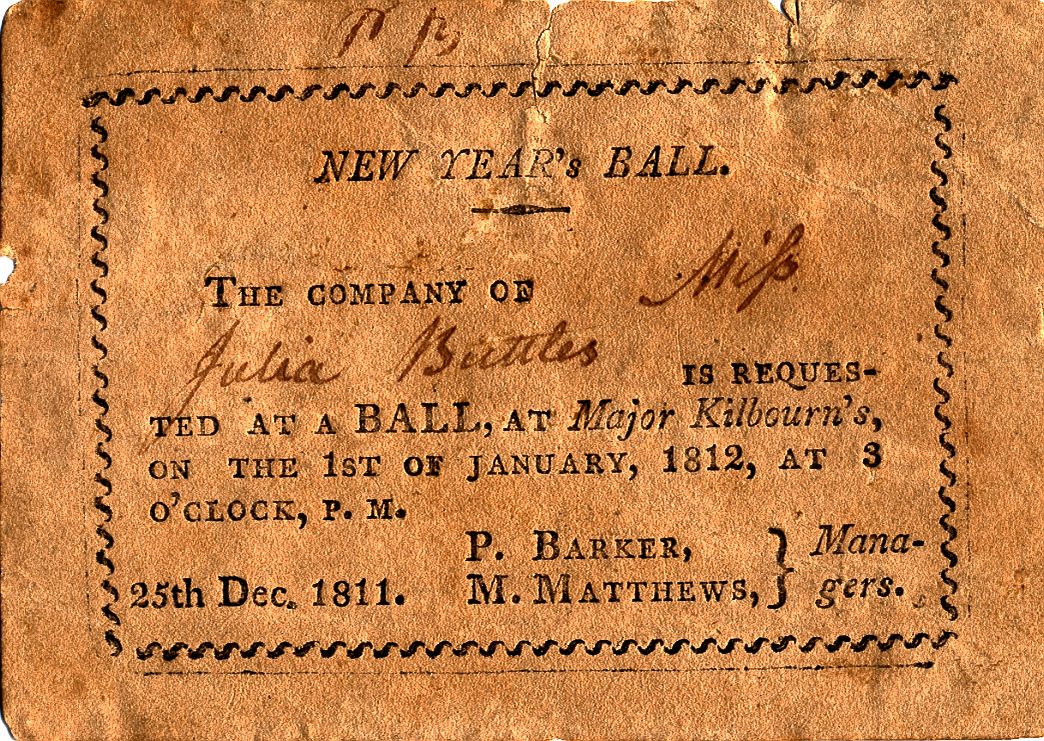 NEW YEAR's BALL.
THE COMPANY OF Miſs.
Julia Buttles
IS REQUES-
TED AT A BALL, AT Major Kilbourn's,
ON THE 1ST OF JANUARY, 1812, AT 3
O'CLOCK, P. M.
P. BARKER, } Mana-
25th Dec. 1811. M. MATTHEWS, } gers.